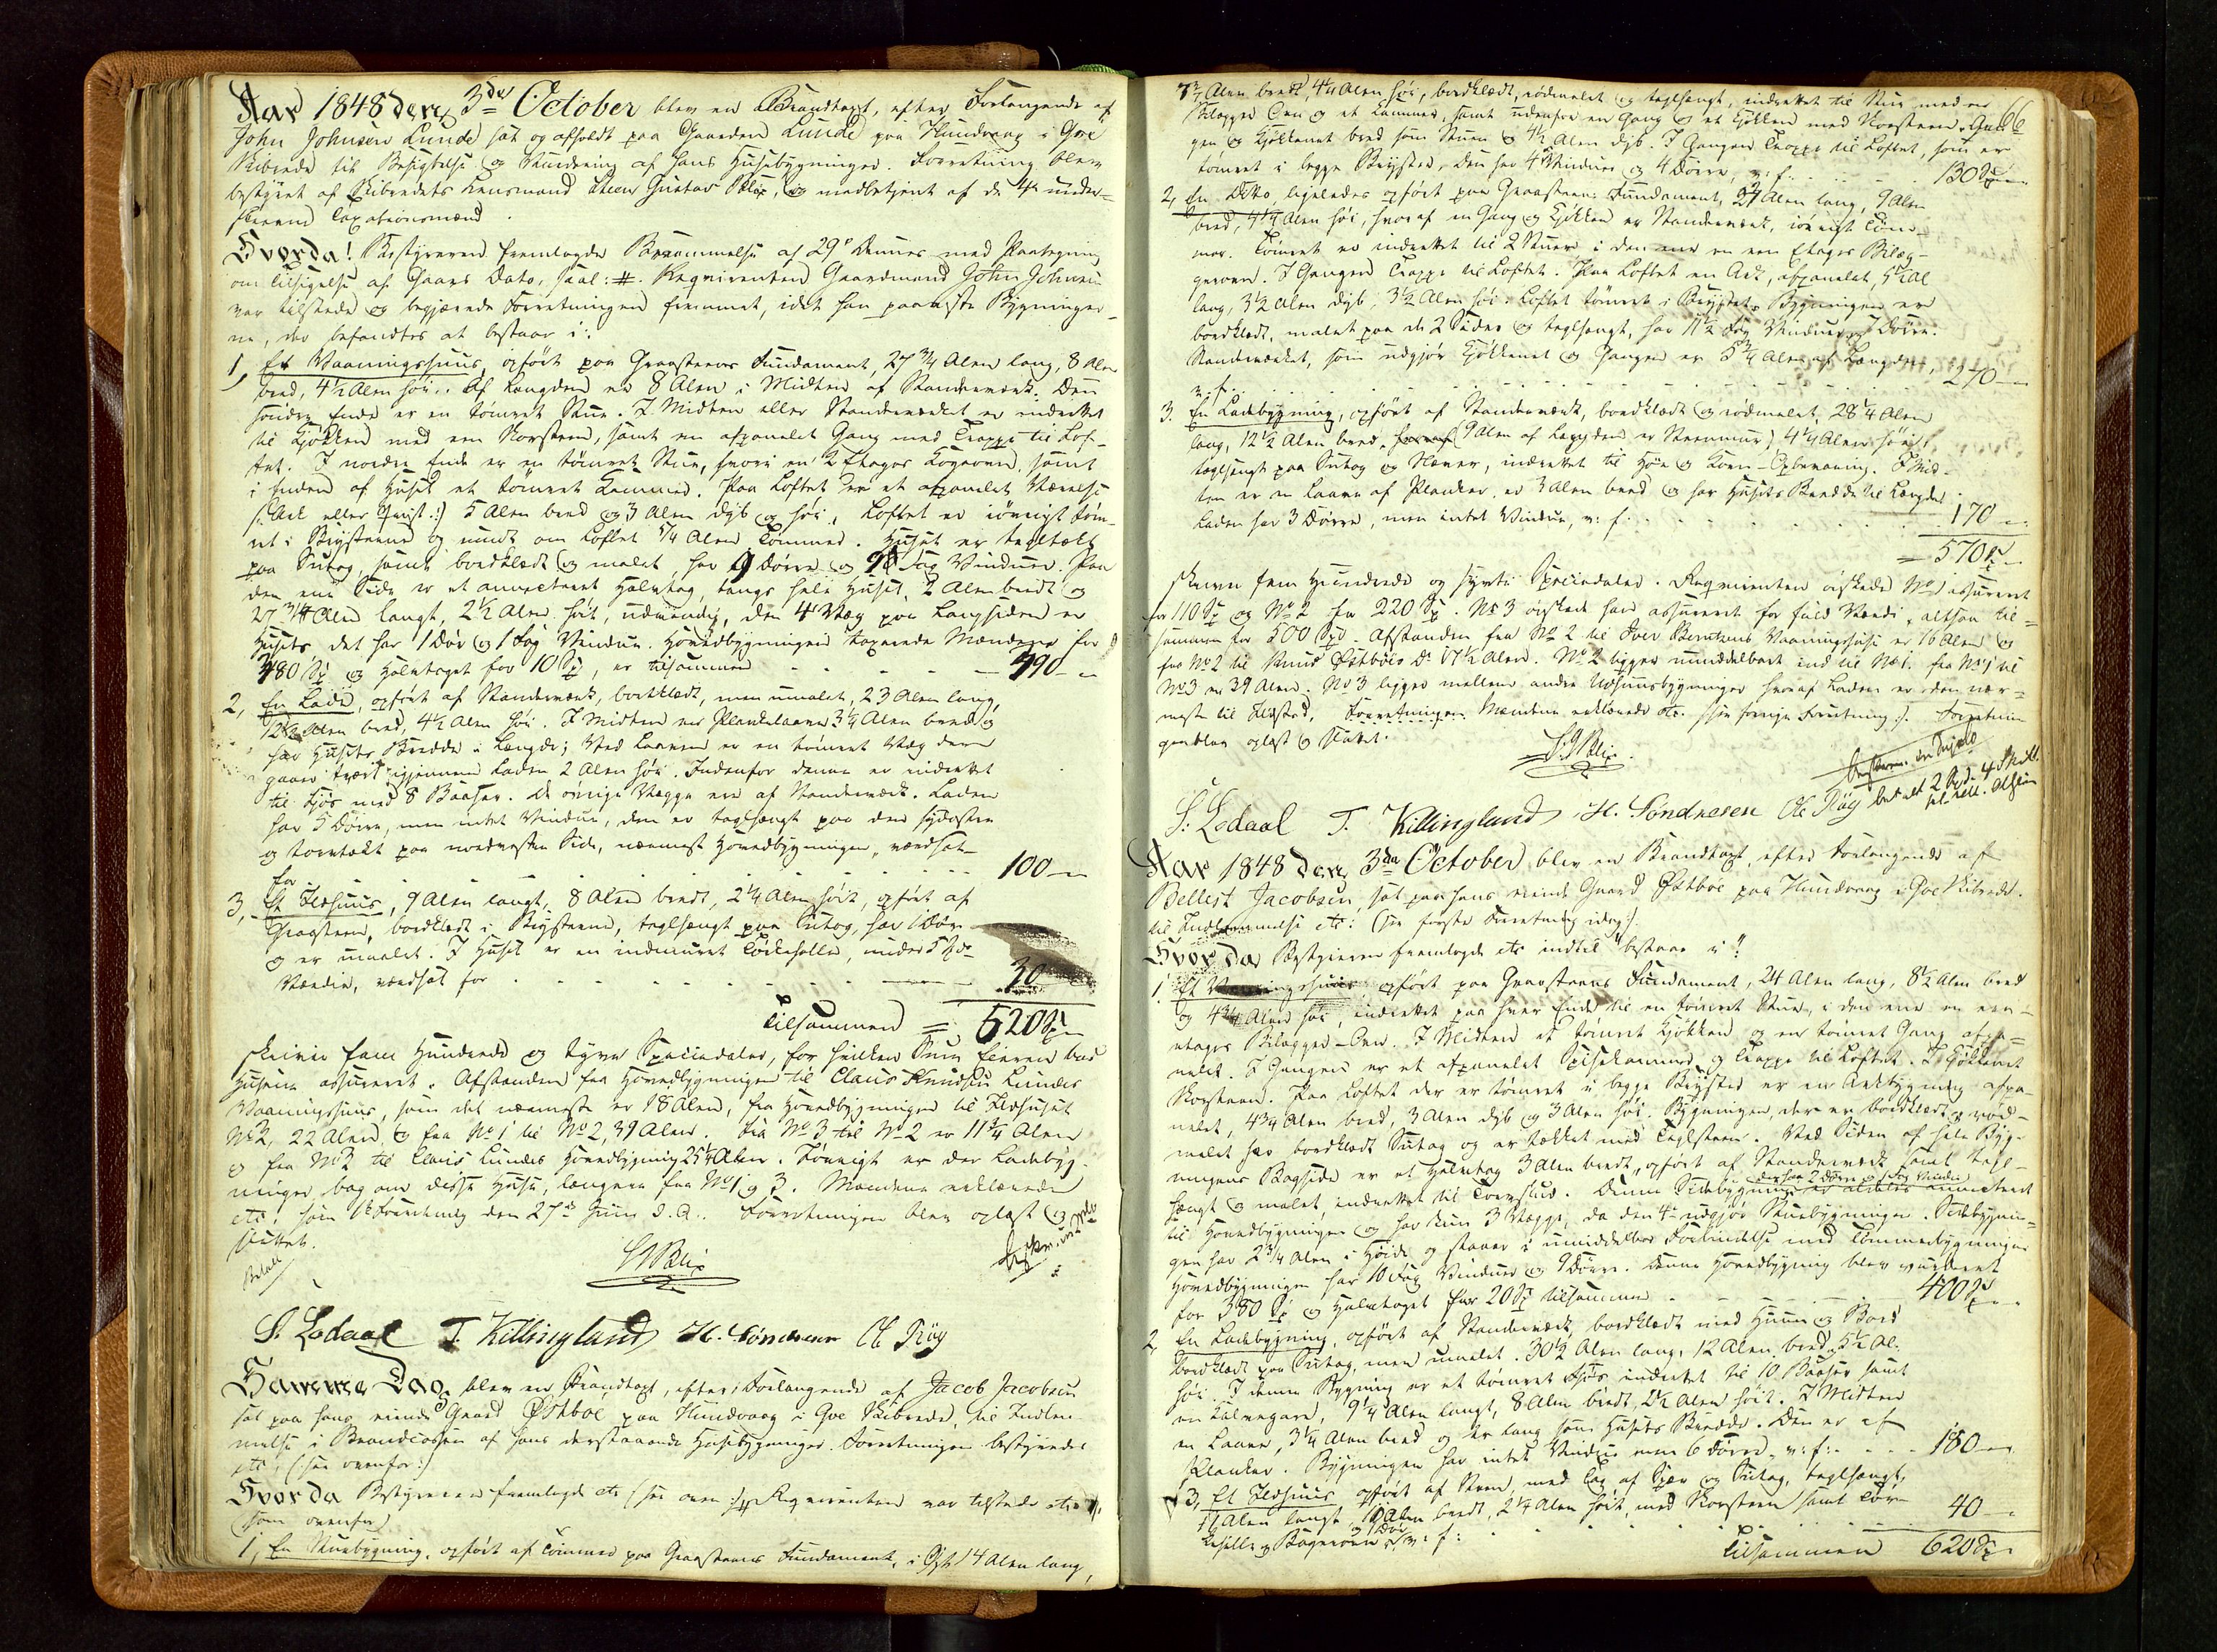 Aar 1848 den 3die October blev en Brandtaxt, efter Forlangende af
John Johnsen Lunde sat og afholdt paa Gaarden Lunde paa Hundvaag i Goe
Skibrede til Besigtelse og Vurdering af hans Huusebygninger. Forretning blev
bestyret af Skibredets Lensmand Steen Gustav Blix, og medbetjent af de 4re under-
skrevne Taxationsmænd.
Hvorda! Bestyreren fremlagde Berammelse af 29de Dennes med Paategning
om tilsigelse af Gaars Dato, saal: #. Reqvirenten Gaardmand John Johnsen
var tilstede og begjærede Forretningen fremmet, idet han paaviiste Bygninger-
ne, der befandtes at bestaae i:
1, Et Vaaningshuus, opført paa Graasteens Fundament, 27 3/4 Alen lang, 8 Alen
bred, 4 1/2 Alen høi. Af Længden er 8 Alen i Midten af Standerværk. Den
søndre Ende er en tømret Stue. I Midten eller Standerværket er indrettet
til Kjøkken med een Skorsteen, samt en afpanelet Gang med Trappe til Lof-
tet. I nordre Ende er en tømret Stue, hvori en 2 Etages Kogeovn, samt
i Enden af Huset et tømret Kammer. Paa Loftet er et afpanelet Værelse
/: Ark eller Qvist :/ 5 Alen bred og 3 Alen dyb og høi, Loftet er iøvrigt tøm-
ret i Brystene og rundt om Loftet 5/4 Alen Tømmer. Huset er tegltækt
paa Sutag, samt bordklædt og malet, har 9 Døre og 9 Fag Vinduer. Paa
den ene Side er et annecteret Halvtag, langs hele Huset, 2 Alen bredt og
27 3/4 Alen langt, 2 1/2 Alen høit, udvendig, den 4de Væg paa Langsiden er
Husets det har 1 Dør og 1 Fag Vindue. Hovedbygningen taxerede Mændene for
380 Sp og Halvtaget for 10 Sp, er tilsammen - - - 390 - "
2, En Lade, opført af Standerværk, bordklædt, men umalet, 23 Alen lang,
12 1/2 Alen bred, 4 1/2 Alen høi. I Midten en Plankelaave 3 1/4 Alen bred og
har Husets Bredde i Længde; Ved Laaven er en tømret Væg der
gaaer tvært igjennem Laden 2 Alen høi. Indenfor denne er indrettet
til Fjøs med 8 Baaser. De øvrige Vægge ere af Standerværk. Laden
har 5 Døre, men intet Vindue, den er teglhængt paa den sydøstre
og torvtækt paa nordvestre Side, nærmest Hovedbygningen, værdsat
for - - - 100 - "
3, Et Ildhuus, 9 Alen langt, 8 Alen bredt, 2 1/4 Alen høit, opført af
Graasteen, bordklædt i Brystene, teglhængt paa Sutag, har 1 Dør
og er umalet. I Huset er en indmuret Tørkehelle, under 5 Spd
Værdie, værdsat for - - - 30
Tilsammen = 520 Sp "
skriver fem Hundrede og tyve Speciedaler, for hvilken Sum Eieren bad
Husene assureret. Afstanden fra Hovedbygningen til Claus Knudsen Lundes
Vaaningshuus, som det nærmeste er 18 Alen, fra Hovedbygningen til Ildhuset
No 3, 22 Alen, og fra No 1 til No 2, 39 Alen. Fra No 3 til No 2 er 11 3/4 Alen
og fra No 3 til Claus Lundes Hovedbygning 25 1/4 Alen. Iøvrigt er der Ladebyg-
ninger bag om disse Huse, længere fra No 1 og 3. Mændene erklærede
etc, som Forretning den 27de Juni d. A. Forretningen blev oplæst og
sluttet.
Betalt
S G Blix
S. Lodaal T. Killingland H. Søndresen Ol Røy
Samme Dag blev en Brandtaxt, efter Forlangende af Jacob Jacobsen
sat paa hans eiende Gaard Østbøe paa Hundvaag i Goe Skibrede, til Indlem-
melse i Brandcassen af hans derstaaende Huusebygninger. Forretningen bestyredes
etc, (see ovenfor:)
Hvorda Bestyreren fremlagde etc (see oven :/ Reqvirenten var tilstede etc
(som ovenfor)
1, En Stuebygning, opført af Tømmer paa Graasteens Fundament, i Øst 14 Alen lang,
66
7 1/2 Alen bredt, 4 1/4 Alen høi, bordklædt, rødmalet og teglhængt, indrettet til Stue med en
Bilægger Ovn og et Kammer, samt udenfor en Gang og et Kjøkken med Skorsteen. Gan-
gen og Kjøkkenet bred som Stuen og 4 1/2 Alen dyb. I Gangen Trappe til Loftet, som er
tømret i begge Brystene. Den har 4 Vinduer og 4 Døre, v: f. - - - 130 Sp "
2, En Ditto, ligeledes opført paa Graasteens Fundament, 24 Alen lang, 9 Alen
bred, 4 1/4 Alen høi, hvoraf en Gang og Kjøkken er Standerværk, iøvrigt Tøm-
mer. Tømret er indrettet til 2 Stuer i den ene en een Etages Bilæg-
gerovn. I Gangen Trappe til Loftet. Paa Loftet en Ark, afpanelet, 5 1/2 Al
lang, 3 1/2 Alen dyb, 3 1/2 Alen høi. Loftet tømret i Brystet. Bygningen er
bordklædt, malet paa de 2 Sider og teglhængt, har 11 1/2 Fag Vinduer og 7 Døre.
Standerværket, som udgjør Kjøkkenet og Gangen er 5 3/4 Alen af Længden,
v: f. - - - 270 - "
3. En Ladebygning, opført af Standerværk, bordklædt og rødmalet, 28 1/4 Alen
lang, 12 1/2 Alen bred, (9 Alen af Længden er Steenmuur) 4 1/4 Alen høi,
teglhængt paa Sutag og Næver, indrettet til Høe og Korn-Opbevaring. I Mid-
ten er en Laave af Planker, er 3 Alen bred og har Husets Bredde til Længde.
Laden har 3 Døre, men intet Vindue, v: f. - - - 170 - "
= 570 Sp "
skriver fem Hundrede og syvti Speciedaler. Reqvirenten ønskede No 1 assureret
for 110 Sp og No 2 for 220 Sp. No 3 ønskede han assureret for fuld Værdi, altsaa til-
sammen for 500 Spd. Afstanden fra No 2 til Iver Berntsens Vaaningshuse er 16 Alen og
fra No 2 til Knud Østbøes Do 17 1/2 Alen. No 2 ligger umiddelbart ind til No 1. Fra No 1 til
No 3 er 39 Alen. No 3 ligger mellem andre Udhuusbygninger hvoraf Laden er den nær-
meste til Ildsted. Forretningen Mændene erklærede etc. (see forrige Forretning :/. Forretnin-
gen blev oplæst og sluttet.
S. G Blix
betalt 2 Spd. 4 Skill.
S. Lodaal T. Killingland H. Sondresen Ole Røy
Aar 1848 den 3die October, blev en Brandtaxt, efter Forlangende af
Bellest Jacobsen, sat paa hans eiende Gaard Østbøe paa Hundvaag i Goe Skibrede.
til Indlemmelse etc: (see første Forretning idag:/
Hvorda Bestyreren fremlagde etc indtil "bestaae i":
1. Et Vaaningshuus opført paa Graasteens Fundament, 24 Alen lang, 8 1/2 Alen bred
og 4 3/4 Alen høi, indrettet paa hver Ende til en tømret Stue, i den ene en een-
etages Bilægger-Ovn. I Midten et tømret Kjøkken og en tømret Gang afpa-
nelet. I Gangen er et afpanelet Spisekammer og Trappe til Loftet. I Kjøkkenet
Skorsteen. Paa Loftet der er tømret i begge Brysted er en Arkbygning afpa-
nelet, 4 3/4 Alen bred, 3 Alen dyb og 3 Alen høi. Bygningen, der er bordklædt og rød-
malet har bordklædt Sutag og er tækket med Teglsteen. Ved Siden af hele Byg-
ningens Bagside er et Halvtag 3 Alen bredt, opført af Standerværk samt tegl-
hængt og malet, indrettet til Torvskuur. Denne Sidebygning der har 2 Døre og 1 Fag Vindue er aldeles annecteret
til Hovedbygningen og har kun 3 Vægge, da den 4de udgjør Stuebygningen. Sidebygnin-
gen har 2 3/4 Alen i Høide og staaer i umiddelbar Forbindelse med Tømmerbygningen
Hovedbygningen har 10 Fag Vinduer og 9 Døre. Denne Hovedbygning blev vurderet
for 380 Sp og Halvtaget for 20 Sp tilsammen - - - 400 Sp "
2, En Ladebygning, opført af Standerværk, bordklædt med Huun og Bord
bordklædt paa Sutag, men umalet. 30 1/2 Alen lang, 12 Alen bred, 5 1/2 Al.
høi. I denne Bygning er et tømret Fjøs indrettet til 10 Baaser samt
en Kalvegard, 9 1/4 Alen langt, 8 Alen bredt, 2 1/2 Alen høit. I Midten
en Laave, 3 1/4 Alen bred og er lang som Husets Bredde. Den er af
Planker. Bygningen har intet Vindue men 6 Døre. v: f: - - - 180 - "
3, Et Ildhuus opført af Steen, med Tag af Spær og Sutag, teglhængt,
11 Alen langt, 10 Alen bredt, 2 1/4 Alen høit, med Skorsteen samt Tør-
kehelle og Bagerovn og 1 Dør v: f: - - - 40 - "
Tilsammen 620 Sp "